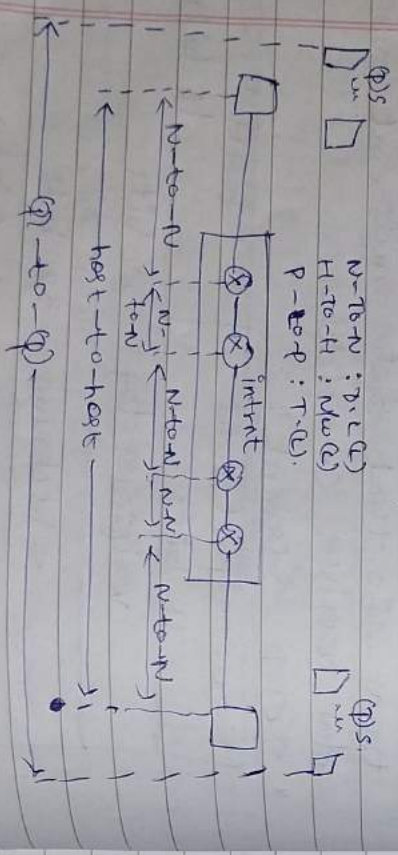 (P)s
(P)s.
N-To-N : D.L(L)
H-To-H : N/w(L)
P-to-P : T.(L).
intrnt
N-to-N
N-
to-N
N-to-N
N-N
N-to-N
host-to-host
(P)-to-(P)